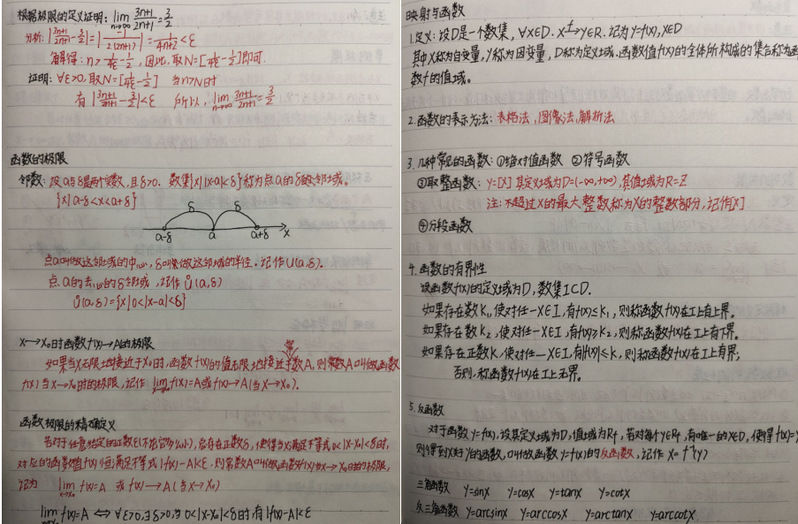 根据极限的定义证明: lim n→∞ (3n+1)/(2n+1) = 3/2
分析: |(3n+1)/(2n+1) - 3/2| = |-1/(2(2n+1))| = 1/(4n+2) < ε
解得: n > 1/4ε - 1/2, 因此, 取N=[1/4ε - 1/2]即可.
证明: ∀ε>0, 取N=[1/4ε - 1/2] 当n>N时
有 |(3n+1)/(2n+1) - 3/2| < ε 所以, lim n→∞ (3n+1)/(2n+1) = 3/2
函数的极限
邻数: 设a与δ是两个实数, 且δ>0. 数集{x||x-a|<δ}称为点a的δ邻域.
{x|a-δ<x<a+δ}
δ δ
a-δ a a+δ x
点a叫做这邻域的中心, δ叫做这邻域的半径. 记作U(a,δ).
点a的去心的δ邻域, 记作Ů(a,δ)
Ů(a,δ)={x|0<|x-a|<δ}
x→x₀时函数f(x)→A的极限
如果当x无限地接近于x₀时, 函数f(x)的值无限地接近于常数A, 则常数A叫做函数
f(x)当x→x₀时的极限, 记作 lim x→x₀ f(x)=A或f(x)→A(当x→x₀).
函数极限的精确定义
若对于任意给定的正数ε(不论它多么小), 总存在正数δ, 使得当x满足不等式0<|x-x₀|<δ时,
对应的函数值f(x)恒满足不等式|f(x)-A|<ε, 则常数A叫做函数f(x)当x→x₀时的极限,
记为 lim x→x₀ f(x)=A 或 f(x)→A(当x→x₀)
lim f(x)=A ⇔ ∀ε>0, ∃δ>0, 当0<|x-x₀|<δ时有|f(x)-A|<ε
映射与函数
1.定义: 设D是一个数集, ∀x∈D. x→f y∈R. 记为y=f(x), x∈D
其中x称为自变量, y称为因变量, D称为定义域. 函数值f(x)的全体所构成的集合称为函
数f的值域.
2.函数的表示方法: 表格法, 图像法, 解析法
3.几种常见的函数: ①绝对值函数 ②符号函数
③取整函数: y=[x] 其定义域为D=(-∞,+∞), 其值域为R=Z
注: 不超过x的最大整数称为x的整数部分, 记作[x]
④分段函数
4.函数的有界性
设函数f(x)的定义域为D, 数集I⊂D.
如果存在数K₁, 使对任一x∈I, 有f(x)≤K₁, 则称函数f(x)在I上有上界.
如果存在数K₂, 使对任一x∈I, 有f(x)≥K₂, 则称函数f(x)在I上有下界.
如果存在正数K, 使对任一x∈I, 有|f(x)|≤K, 则称函数f(x)在I上有界;
否则, 称函数f(x)在I上无界.
5.反函数
对于函数y=f(x), 设其定义域为D, 值域为Rf, 若对每个y∈Rf, 有唯一的x∈D, 使得f(x)=y
则得到x对y的函数, 叫做函数y=f(x)的反函数, 记作 x=f⁻¹(y)
三角函数 y=sinx y=cosx y=tanx y=cotx
反三角函数 y=arcsinx y=arccosx y=arctanx y=arccotx